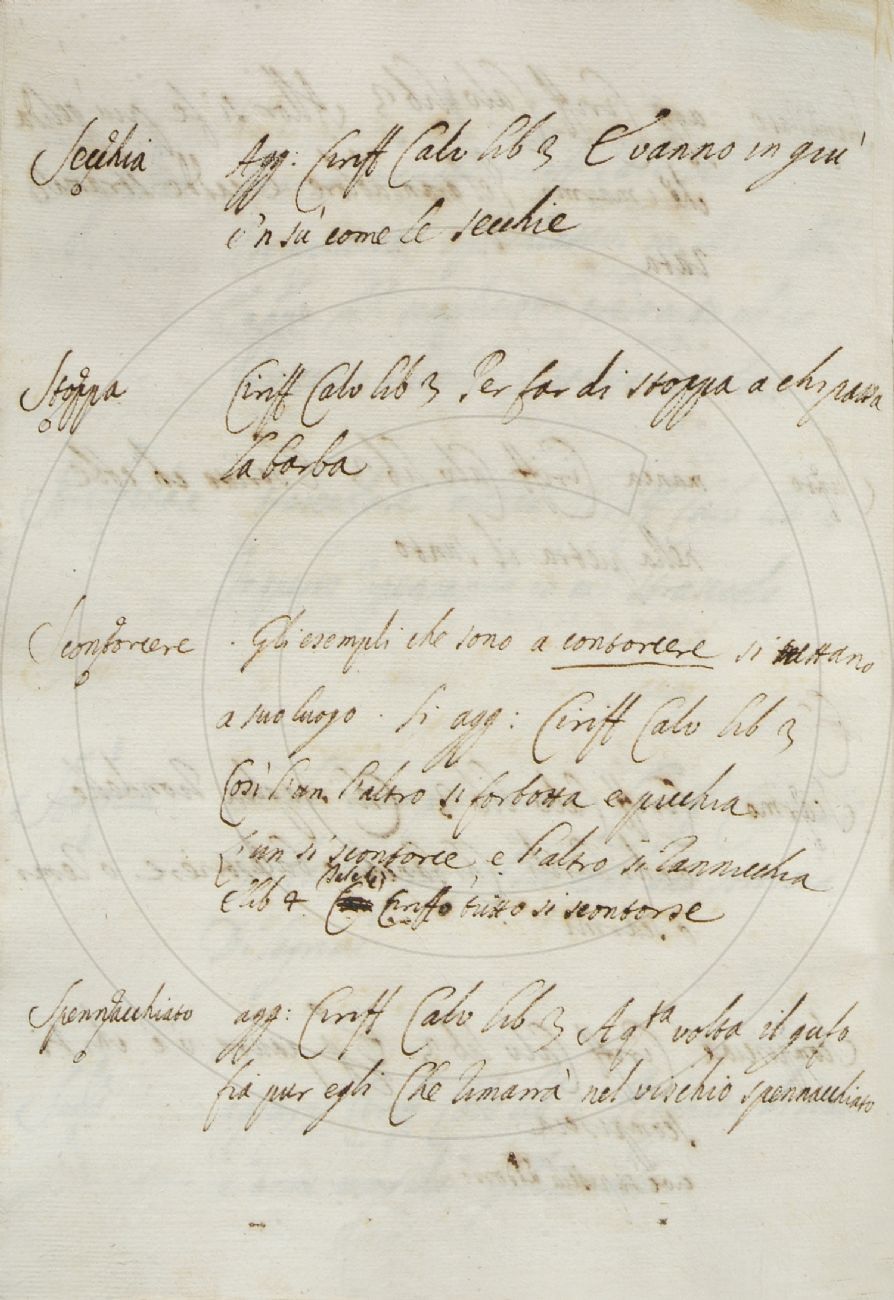 Secchia Agg: Ciriff Calv lib 3 E vanno in giu'
e'n sù come le secchie
Stoppa Ciriff Calv lib 3 Per far di stoppa a chi passa
la barba
Scontorcere Gli esempli che sono a contorcere si mettano
a suo luogo. Si agg: Ciriff Calv lib 3
Così l'un l'altro si forbotta e picchia
L'un si scontorce e l'altro si rannicchia
E lib 4 Ciriffo tutto si scontorse
Spennacchiato agg: Ciriff Calv lib 3 A qsta volta il gufo
fia pur egli Che rimarrà nel vischio spennacchiato